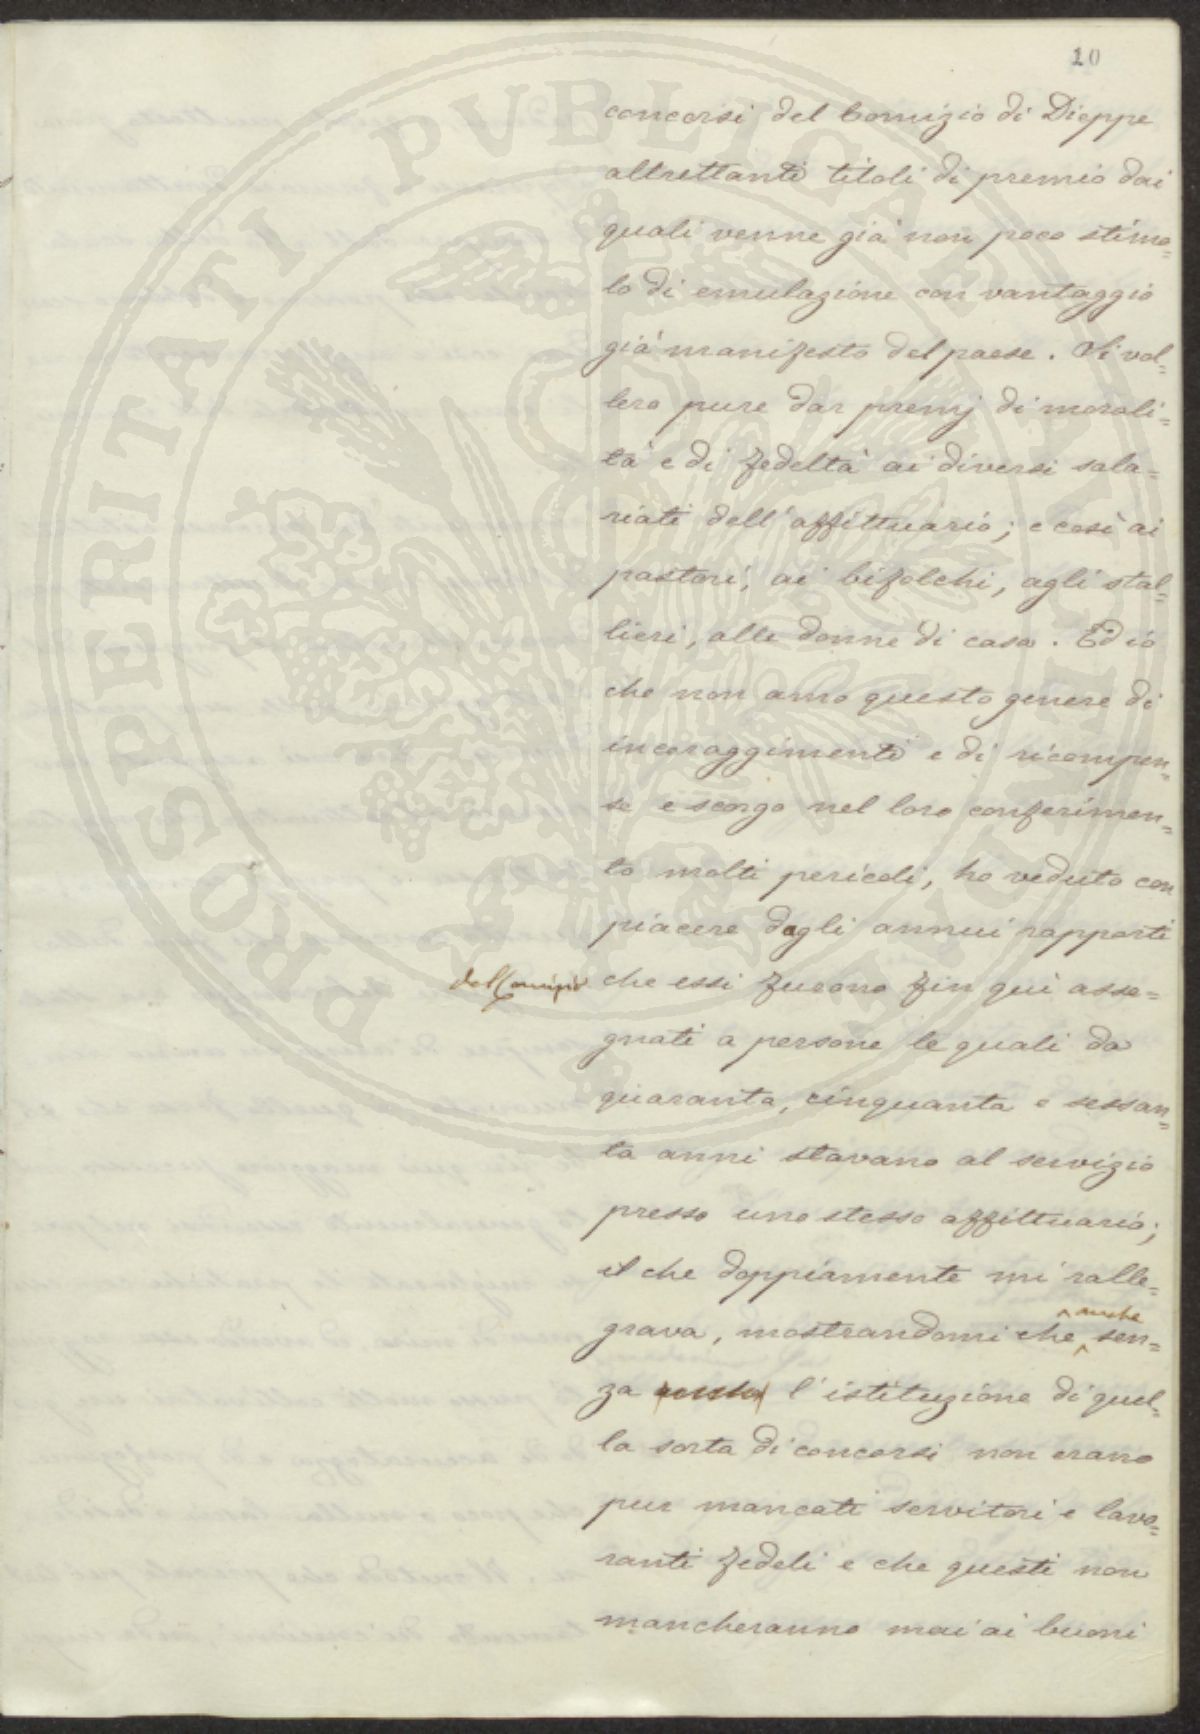 10
concorsi del Comizio di Dieppe
altrettanti titoli di premio dai
quali venne già non poco stimo=
lo di emulazione con vantaggio
già manifesto del paese. Si vol=
lero pure dar premj di morali=
tà e di fedeltà ai diversi sala=
riati dell'affittuario; e così ai
pastori, ai bifolchi, agli stal=
lieri, alle donne di casa. Ed io
che non amo questo genere di
incoraggimenti e di ricompen=
se e scorgo nel loro conferimen=
to molti pericoli, ho veduto con
piacere dagli annui rapporti
del Comizio
che essi furono fin qui asse=
gnati a persone le quali da
quaranta, cinquanta e sessan=
ta anni stavano al servizio
presso uno stesso affittuario;
il che doppiamente mi ralle=
anche
grava, mostrandomi che sen=
za anche l'istituzione di quel=
la sorta di concorsi non erano
pur mancati servitori e lavo=
ranti fedeli e che questi non
mancheranno mai ai buoni
PROSPERITATI PVBLICAE AVGENDAE